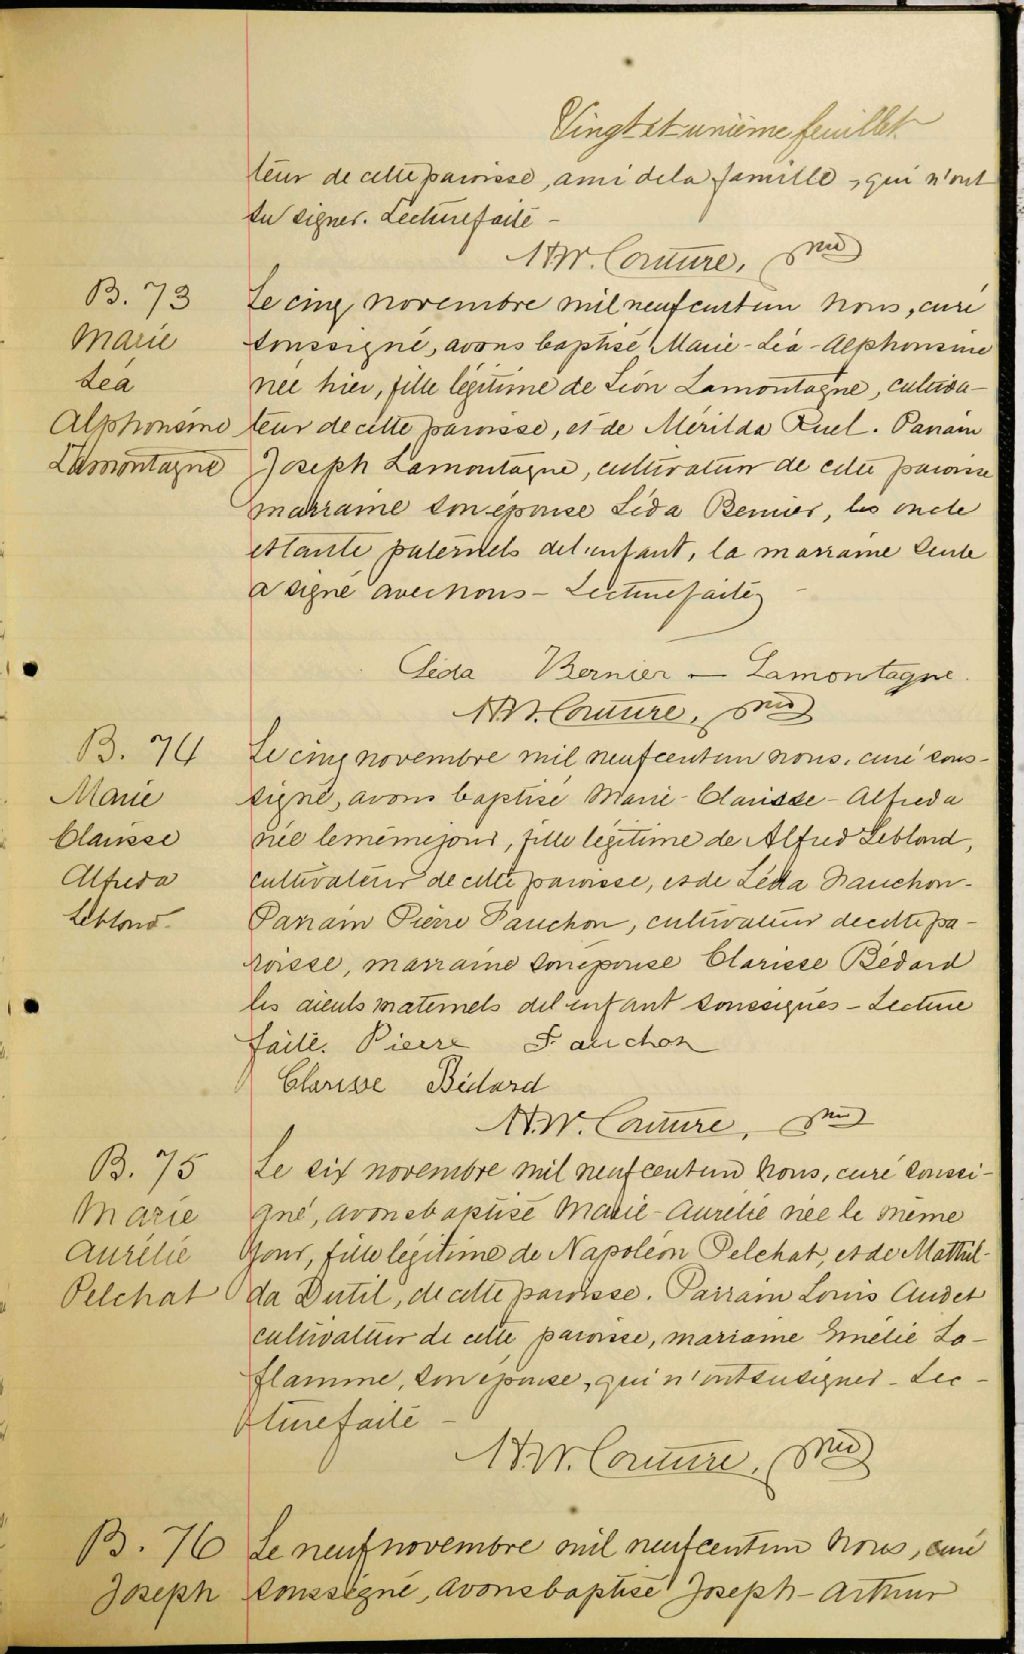 Vingt et unième feuillet
teur de cette paroisse, ami de la famille, qui n'ont
su signer. Lecture faite -
H.W. Couture, ptre
B. 73
Marie
Léa
Alphonsine
Lamontagne
Le cinq novembre mil neuf cent un nous, curé
soussigné, avons baptisé Marie-Léa-Alphonsine
née hier, fille légitime de Léon Lamontagne, cultiva-
teur de cette paroisse, et de Mérilda Ruel. Parrain
Joseph Lamontagne, cultivateur de cette paroisse
marraine son épouse Léda Bernier, les oncle
et tante paternels de l'enfant, la marraine seule
a signé avec nous - Lecture faite
Léda Bernier — Lamontagne.
H.W. Couture, ptre
B. 74
Marie
Clarisse
Alfreda
Leblond.
Le cinq novembre mil neuf cent un nous, curé sous-
signé, avons baptisé Marie-Clarisse-Alfreda
née le même jour, fille légitime de Alfred Leblond,
cultivateur de cette paroisse, et de Léda Fauchon.
Parrain Pierre Fauchon, cultivateur de cette pa-
roisse, marraine son épouse Clarisse Bédard
les aieuls maternels de l'enfant soussignés - Lecture
faite. Pierre Fauchon
Clarisse Bédard
H.W. Couture, ptre
B. 75
Marie
Aurélie
Pelchat
Le six novembre mil neuf cent un nous, curé soussi-
gné, avons baptisé Marie-Aurélie née le même
jour, fille légitime de Napoléon Pelchat, et de Mathil-
da Dutil, de cette paroisse. Parrain Louis Audet
cultivateur de cette paroisse, marraine Emélie La-
flamme, son épouse, qui n'ont su signer - Lec-
ture faite -
H.W. Couture, ptre
B. 76
Joseph
Le neuf novembre mil neuf cent un nous, curé
soussigné, avons baptisé Joseph-Arthur